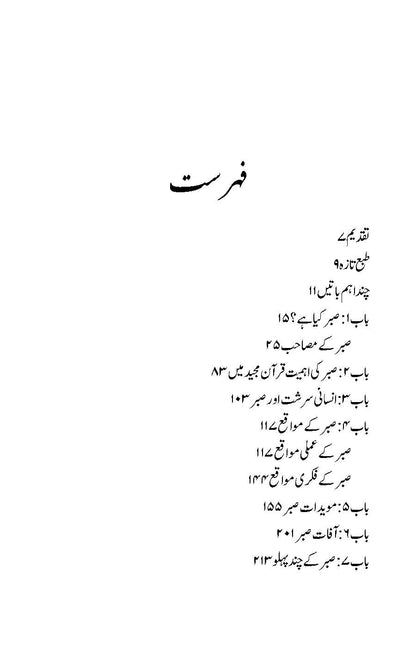 فہرست
تقدیم ۷
طبع تازہ ۹
چند اہم باتیں ۱۱
باب ۱: صبر کیا ہے؟ ۱۵
صبر کے مصاحب ۲۵
باب ۲: صبر کی اہمیت قرآن مجید میں ۸۳
باب ۳: انسانی سرشت اور صبر ۱۰۳
باب ۴: صبر کے مواقع ۱۱۷
صبر کے عملی مواقع ۱۱۷
صبر کے فکری مواقع ۱۴۴
باب ۵: مویدات صبر ۱۵۵
باب ۶: آفات صبر ۲۰۱
باب ۷: صبر کے چند پہلو ۲۱۳